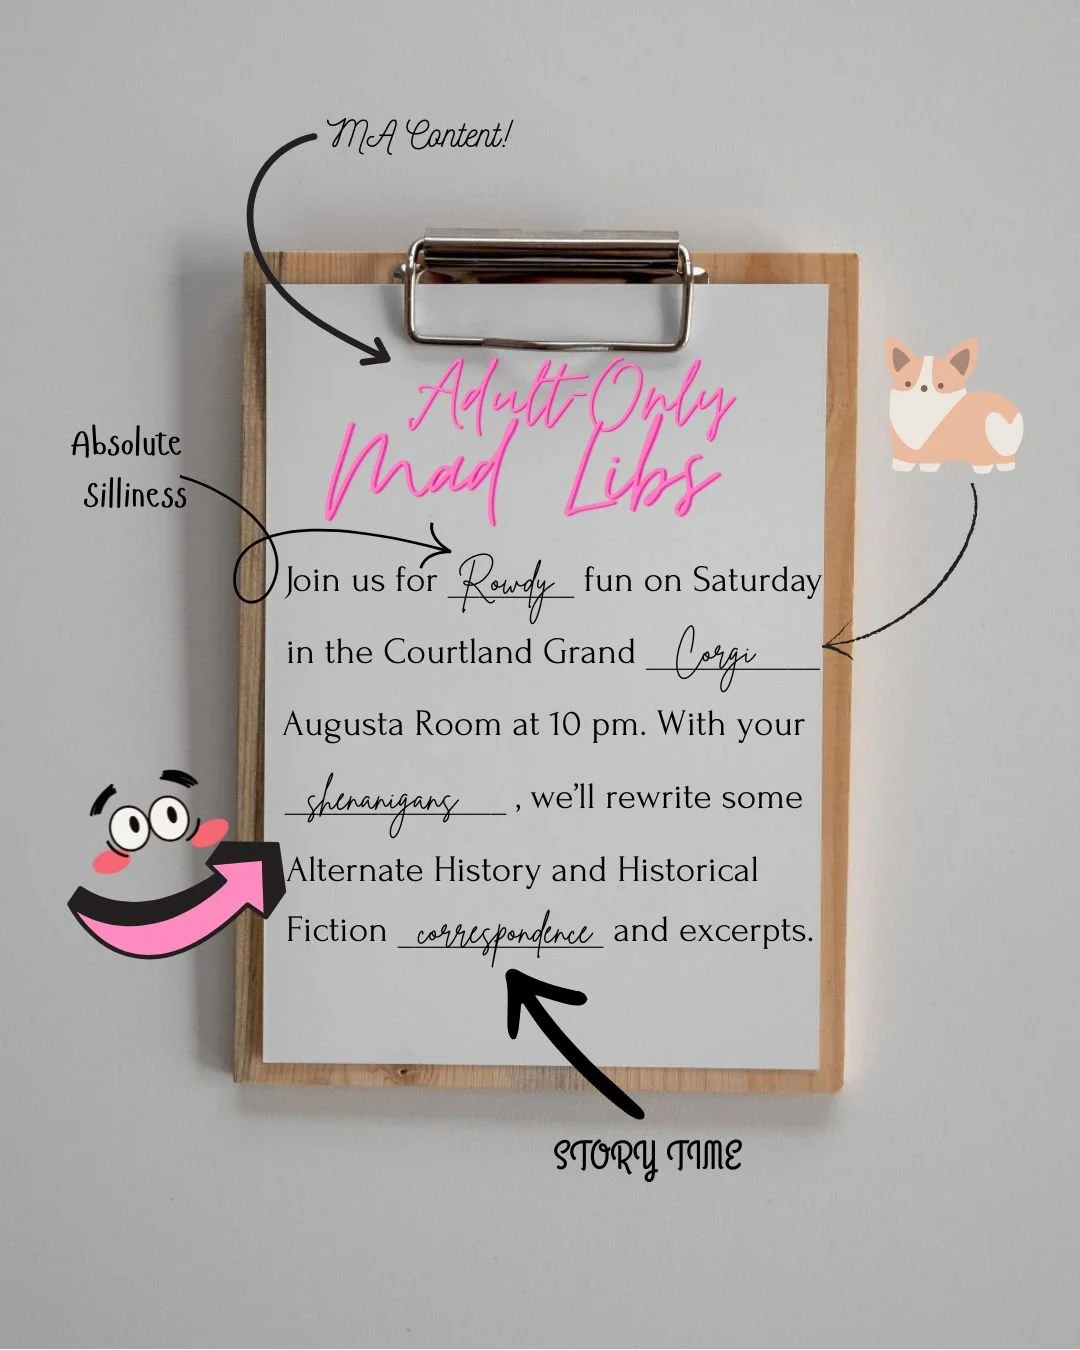 MA Content!
Adult-Only
Mad Libs
Absolute
Silliness
Join us for Rowdy fun on Saturday
in the Courtland Grand Corgi
Augusta Room at 10 pm. With your
shenanigans, we'll rewrite some
Alternate History and Historical
Fiction correspondence and excerpts.
STORY TIME